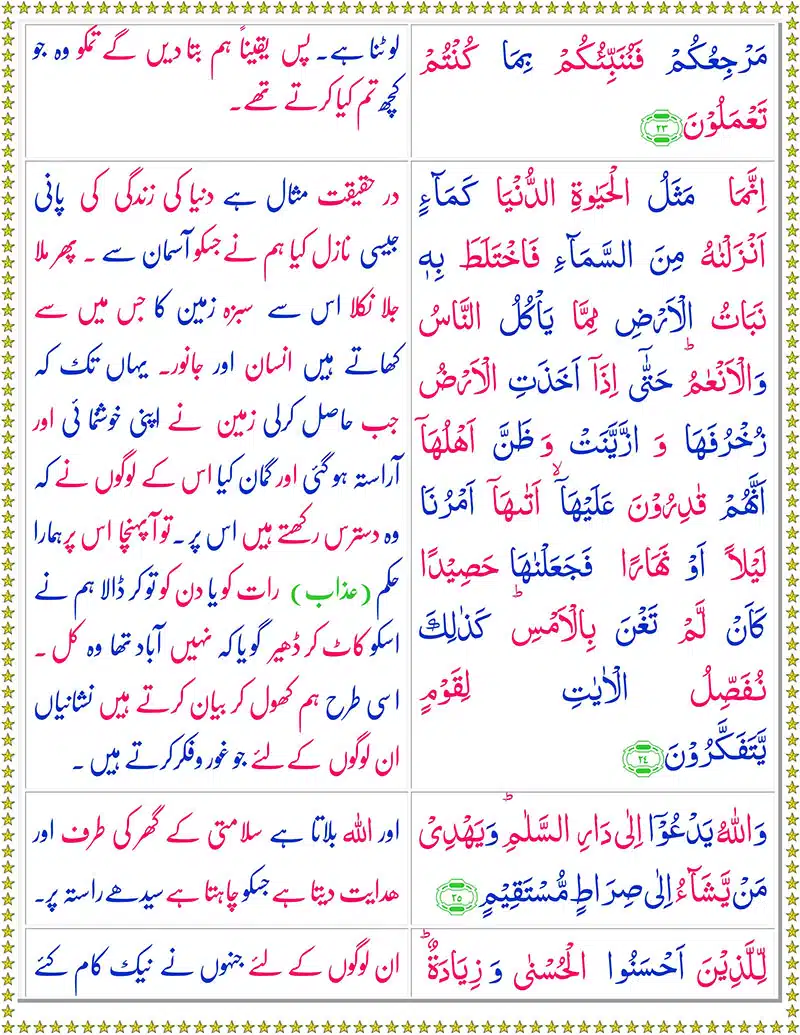 مَرْجِعُكُمْ فَنُنَبِّئُكُمْ بِمَا كُنْتُمْ
تَعْمَلُوْنَ ﴿۲۳﴾
لوٹنا ہے۔ پس یقیناً ہم بتا دیں گے تمکو وہ جو
کچھ تم کیا کرتے تھے۔
اِنَّمَا مَثَلُ الْحَيٰوةِ الدُّنْيَا كَمَآءٍ
اَنْزَلْنٰهُ مِنَ السَّمَآءِ فَاخْتَلَطَ بِهٖ
نَبَاتُ الْاَرْضِ مِمَّا يَاْكُلُ النَّاسُ
وَالْاَنْعٰمُ ؕ حَتّٰۤى اِذَاۤ اَخَذَتِ الْاَرْضُ
زُخْرُفَهَا وَ ازَّيَّنَتْ وَ ظَنَّ اَهْلُهَاۤ
اَنَّهُمْ قٰدِرُوْنَ عَلَيْهَاۤ ۙ اَتٰٮهَاۤ اَمْرُنَا
لَيْلًا اَوْ نَهَارًا فَجَعَلْنٰهَا حَصِيْدًا
كَاَنْ لَّمْ تَغْنَ بِالْاَمْسِ ؕ كَذٰلِكَ
نُفَصِّلُ الْاٰيٰتِ لِقَوْمٍ
يَّتَفَكَّرُوْنَ ﴿۲٤﴾
در حقیقت مثال ہے دنیا کی زندگی کی پانی
جیسی نازل کیا ہم نے جسکو آسمان سے ۔ پھر ملا
جلا نکلا اس سے سبزہ زمین کا جس میں سے
کھاتے ہیں انسان اور جانور۔ یہاں تک کہ
جب حاصل کرلی زمین نے اپنی خوشمائی اور
آراستہ ہوگئی اور گمان کیا اس کے لوگوں نے کہ
وہ دسترس رکھتے ہیں اس پر ۔ تو آپہنچا اس پر ہمارا
حکم (عذاب) رات کو یا دن کو تو کر ڈالا ہم نے
اسکو کاٹ کر ڈھیر گویا کہ نہیں آباد تھا وہ کل ۔
اسی طرح ہم کھول کر بیان کرتے ہیں نشانیاں
ان لوگوں کے لئے جو غور وفکر کرتے ہیں ۔
وَاللّٰهُ يَدْعُوْۤا اِلٰى دَارِ السَّلٰمِ ؕ وَيَهْدِىْ
مَنْ يَّشَآءُ اِلٰى صِرَاطٍ مُّسْتَقِيْمٍ ﴿۲۵﴾
اور اللہ بلاتا ہے سلامتی کے گھر کی طرف اور
ھدایت دیتا ہے جسکو چاہتا ہے سیدھے راستہ پر۔
لِلَّذِيْنَ اَحْسَنُوا الْحُسْنٰى وَ زِيَادَةٌ ؕ
ان لوگوں کے لئے جنہوں نے نیک کام کئے